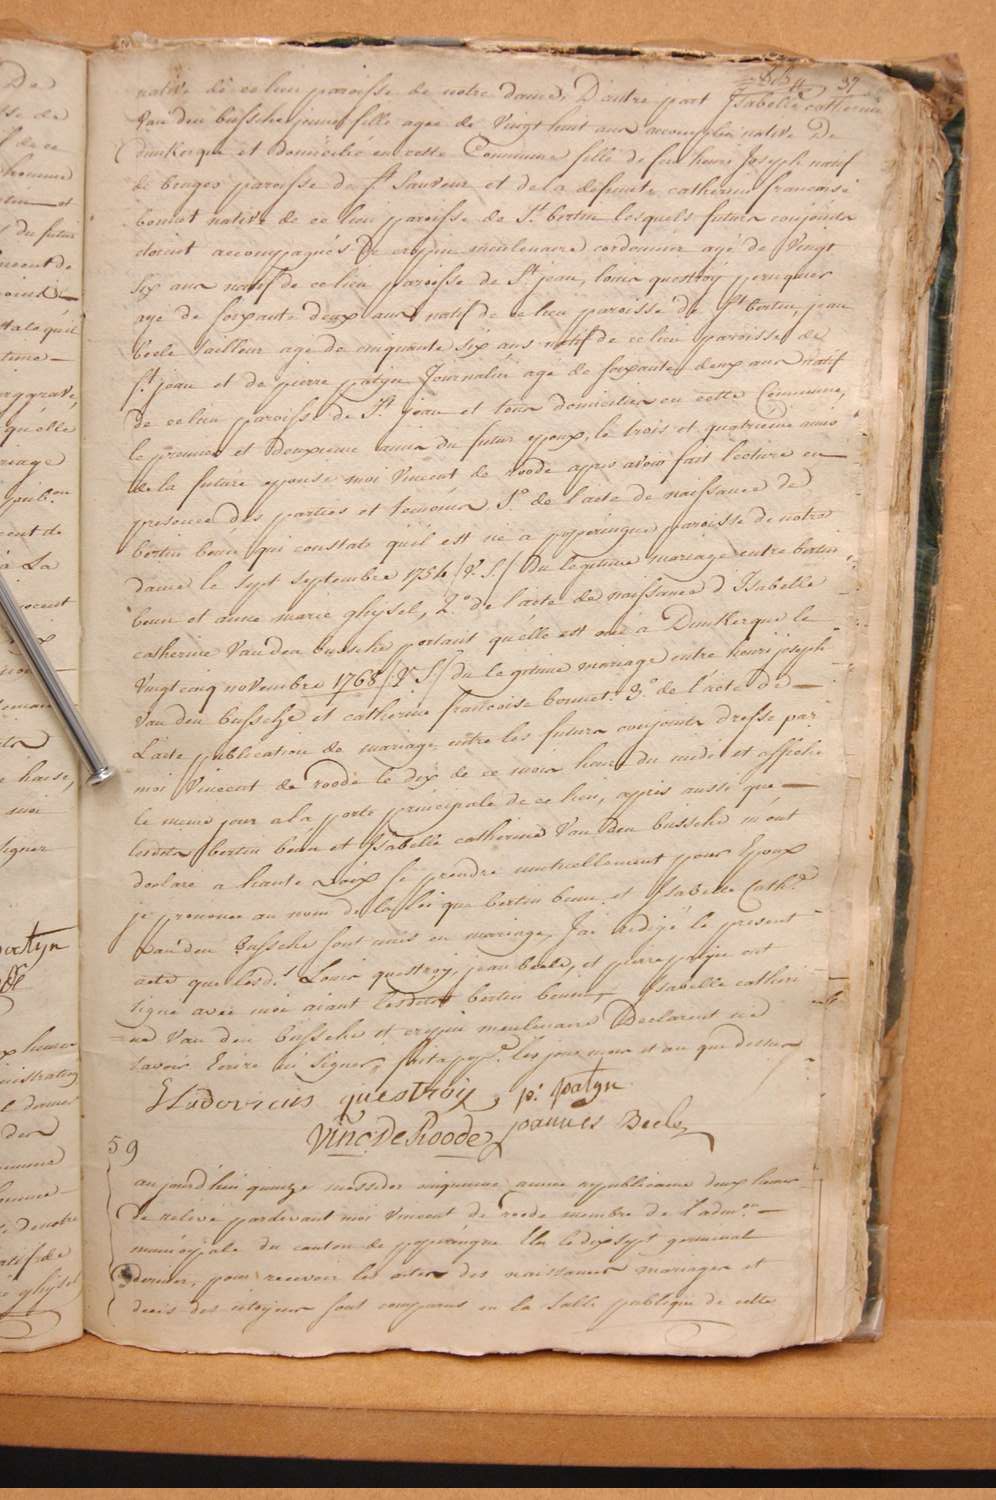 37
native de ce lieu paroisse de notre dame, D'autre part Isabelle catherine
Van den bussche jeune fille agee de Vingt huit ans accomplis native De
dunkerque et domicilié en cette Commune fille de feu henri Joseph natif
de bruges paroisse de St Sauveur et de la defunte catherine francoise
bonnet native de ce lieu paroisse de St bertin lesquels futurs conjoints
etoient accompagnés de crepin meulenaere cordonnier agé de Vingt
Six ans natif de ce lieu paroisse de St jean, louis questroy perruquier
agé de soixante deux ans natif de ce lieu paroisse de St bertin, jean
beele tailleur age de cinquante six ans natif de ce lieu paroisse de
St jean et de pierre patyn Journalier agé de soixante deux ans natif
de ce lieu paroisse de St jean et tous domiciliés en cette Commune,
le premier et deuxieme amis du futur epoux, le trois et quatrieme amis
de la future epouse moi Vincent de roode apres avoir fait lecture en
presence des parties et temoins 1º de l'acte de naissance de
bertin beun qui constate qu'il est né a poperingue paroisse de notre
dame le sept septembre 1754 (V.S.) du legitime mariage entre bertin
beun et anne marie ghysel, 2º de l'acte de naissance d'Isabelle
catherine Van den bussche portant qu'elle est née a Dunkerque le
Vingt cinq novembre 1768 (V.S.) du legitime mariage entre henri joseph
Van den bussche et catherine francoise bonnet 3º de l'acte de
L'acte publication de mariage entre les futurs conjoints dressé par
moi Vincent de roode le dix de ce mois heure du midi et affiché
le meme jour a la porte principale de ce lieu, apres aussi que
lesdits bertin beun et Isabelle catherine Van den bussche m'ont
declaré a haute voix se prendre mutuellement pour Epoux
je prononce au nom de la loi que bertin beun et Isabelle Cathe
Van den Bussche sont unis en mariage, J'ai redigé le present
acte que lesdt Louis questroy, jean beele, et pierre patyn ont
signé avec moi aiant lesdits bertin beun, Isabelle catheri
ne Van den bussche et crepin meulenaere Declarent ne
savoir Ecrire ni Signer, fait a pop.e les jour mois et an que dessus
Ludovicus questroy, p: patyn
Vinc. De Roode joannes Beele
59
aujourd'hui quinze messidor cinquieme année republicaine deux heures
de relevé pardevant moi Vincent de roode membre de l'admon
municipale du canton de poperingue Elu le dix sept germinal
dernier, pour recevoir les actes des naissances mariages et
deces des citoyens sont comparus en la salle publique de cette